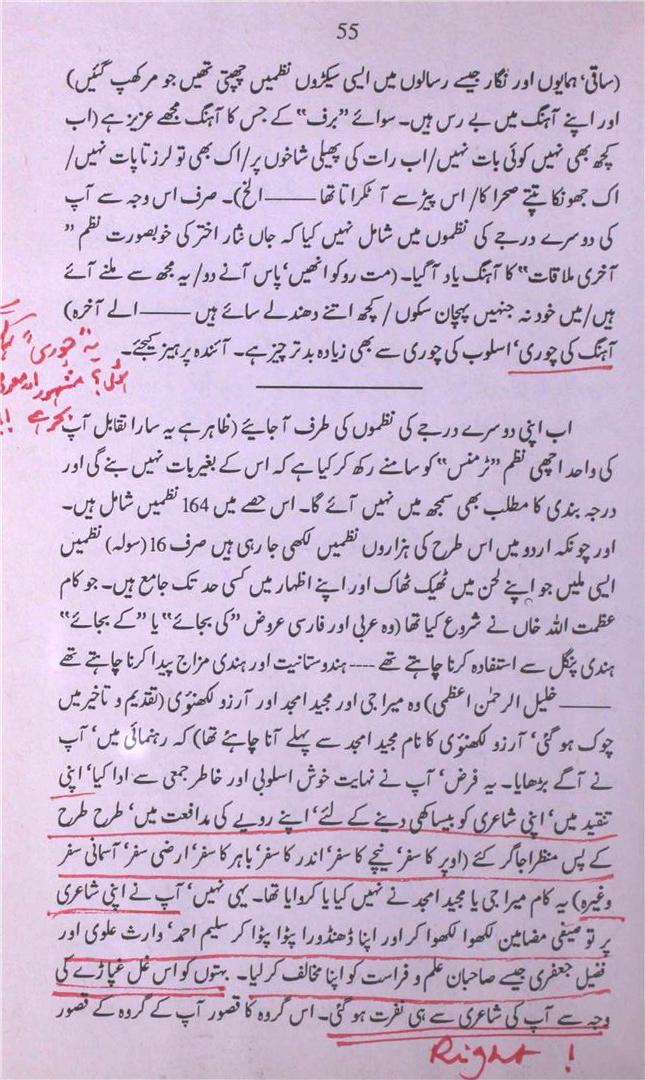 55
(ساقی‘ ہمایوں اور نگار جیسے رسالوں میں ایسی سیکڑوں نظمیں چھپتی تھیں جو مرکھپ گئیں)
اور اپنے آہنگ میں بے رس ہیں۔ سوائے ”برف“ کے جس کا آہنگ مجھے عزیز ہے (اب
کچھ بھی نہیں کوئی بات نہیں/اب رات کی پھیلی شاخوں پر/اک بھی تو لرزتا پات نہیں/
اک جھونکا تپتے صحرا کا/ اس پیڑ سے آ ٹکراتا تھا ——— الخ)۔ صرف اس وجہ سے آپ
کی دوسرے درجے کی نظموں میں شامل نہیں کیا کہ جاں نثار اختر کی خوبصورت نظم ”
آخری ملاقات“ کا آہنگ یاد آگیا۔ (مت روکو انھیں‘ پاس آنے دو/ یہ مجھ سے ملنے آئے
ہیں/میں خود نہ جنہیں پہچان سکوں/ کچھ اتنے دھندلے سائے ہیں ——— الے آخرہ)
آہنگ کی چوری‘ اسلوب کی چوری سے بھی زیادہ بدتر چیز ہے۔ آئندہ پرہیز کیجئے۔
یہ ”چوری“
ہوئی؟ مشہور اور
بحر ہے !!
اب اپنی دوسرے درجے کی نظموں کی طرف آجایئے (ظاہر ہے یہ سارا تقابل آپ
کی واحد اچھی نظم ”ٹرمنس“ کو سامنے رکھ کر کیا ہے کہ اس کے بغیر بات نہیں بنے گی اور
درجہ بندی کا مطلب بھی سمجھ میں نہیں آئے گا۔ اس حصے میں 164 نظمیں شامل ہیں۔
اور چونکہ اردو میں اس طرح کی ہزاروں نظمیں لکھی جا رہی ہیں صرف 16 (سولہ) نظمیں
ایسی ملیں جو اپنے لحن میں ٹھیک ٹھاک اور اپنے اظہار میں کسی حد تک جامع ہیں۔ جو کام
عظمت اللہ خاں نے شروع کیا تھا (وہ عربی اور فارسی عروض ”کی بجائے“ یا ”کے بجائے“
ہندی پنگل سے استفادہ کرنا چاہتے تھے ---- ہندوستانیت اور ہندی مزاج پیدا کرنا چاہتے تھے
——— خلیل الرحمٰن اعظمی) وہ میراجی اور مجید امجد اور آرزو لکھنوٗی (تقدیم و تاخیر میں
چوک ہوگئی‘ آرزو لکھنوٗی کا نام مجید امجد سے پہلے آنا چاہئے تھا) کہ رہنمائی میں‘ آپ
نے آگے بڑھایا۔ یہ فرض‘ آپ نے نہایت خوش اسلوبی اور خاطر جمعی سے ادا کیا‘ اپنی
تنقید میں‘ اپنی شاعری کو بیساکھی دینے کے لئے‘ اپنے رویے کی مدافعت میں‘ طرح طرح
کے پس منظر اجاگر کئے (اوپر کا سفر‘ نیچے کا سفر‘ اندر کا سفر‘ باہر کا سفر‘ ارضی سفر‘ آسمانی سفر
وغیرہ) یہ کام میراجی یا مجید امجد نے نہیں کیا یا کروایا تھا۔ یہی نہیں‘ آپ نے اپنی شاعری
پر توصیفی مضامین لکھوا لکھوا کر اور اپنا ڈھنڈورا پڑا پڑوا کر سلیم احمد‘ وارث علوی اور
فضیل جعفری جیسے صاحبان علم و فراست کو اپنا مخالف کرلیا۔ بہتوں کو اس غل غپاڑے کی
وجہ سے آپ کی شاعری سے ہی نفرت ہوگئی۔ اس گروہ کا قصور آپ کے گروہ کے قصور
Right !